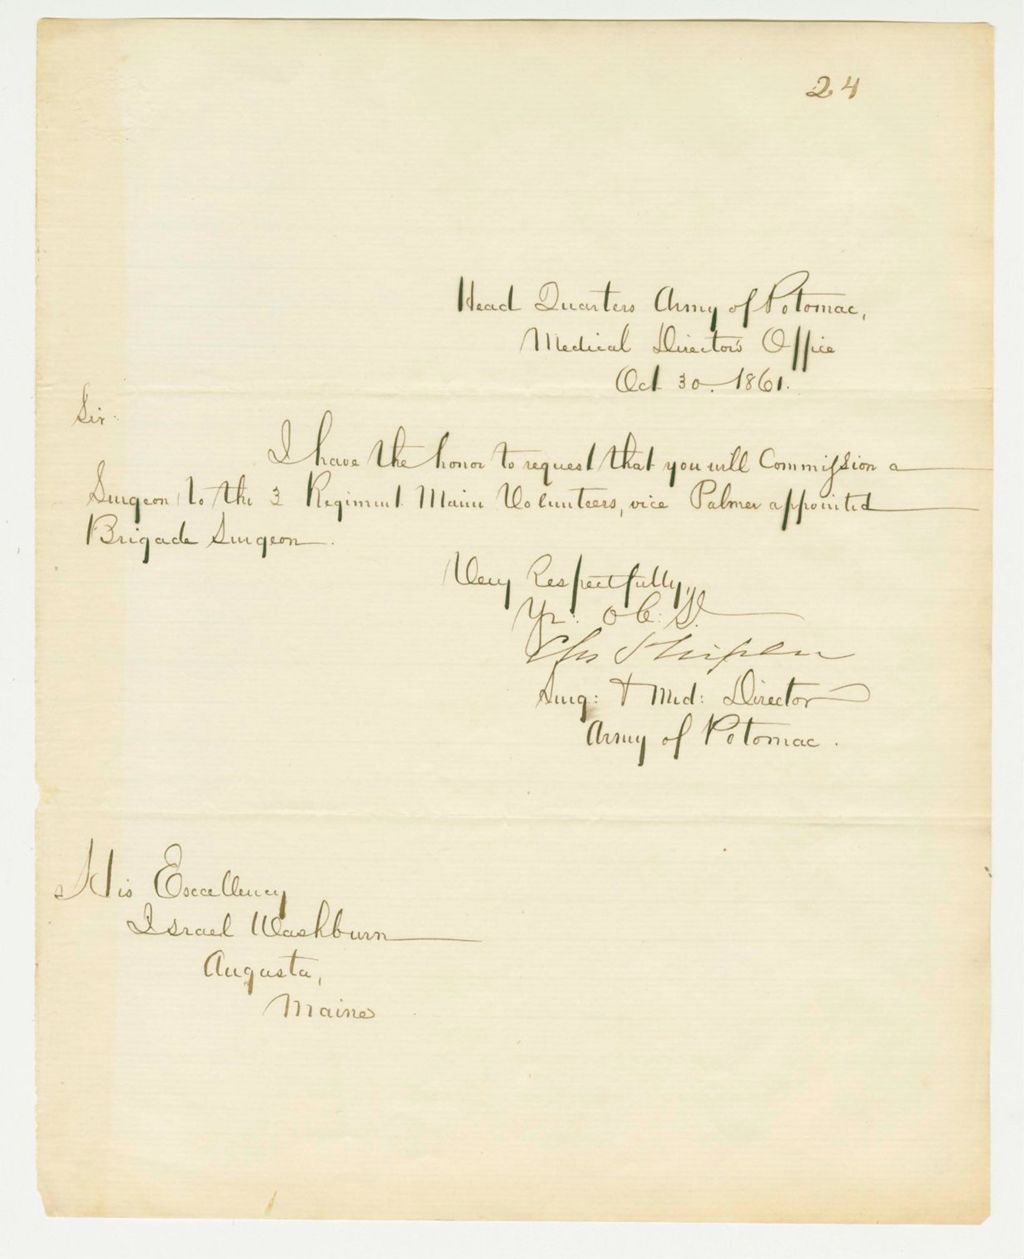 24
Head Quarters Army of Potomac,
Medical Director's Office
Oct 30. 1861.
Sir.
I have the honor to request that you will Commission a
Surgeon to the 3 Regiment Maine Volunteers, vice Palmer appointed
Brigade Surgeon.
Very Respectfully,
Yr. Ob. St.
Chs Tripler
Surg: & Med: Director
Army of Potomac.
His Excellency
Israel Washburn
Augusta,
Maine